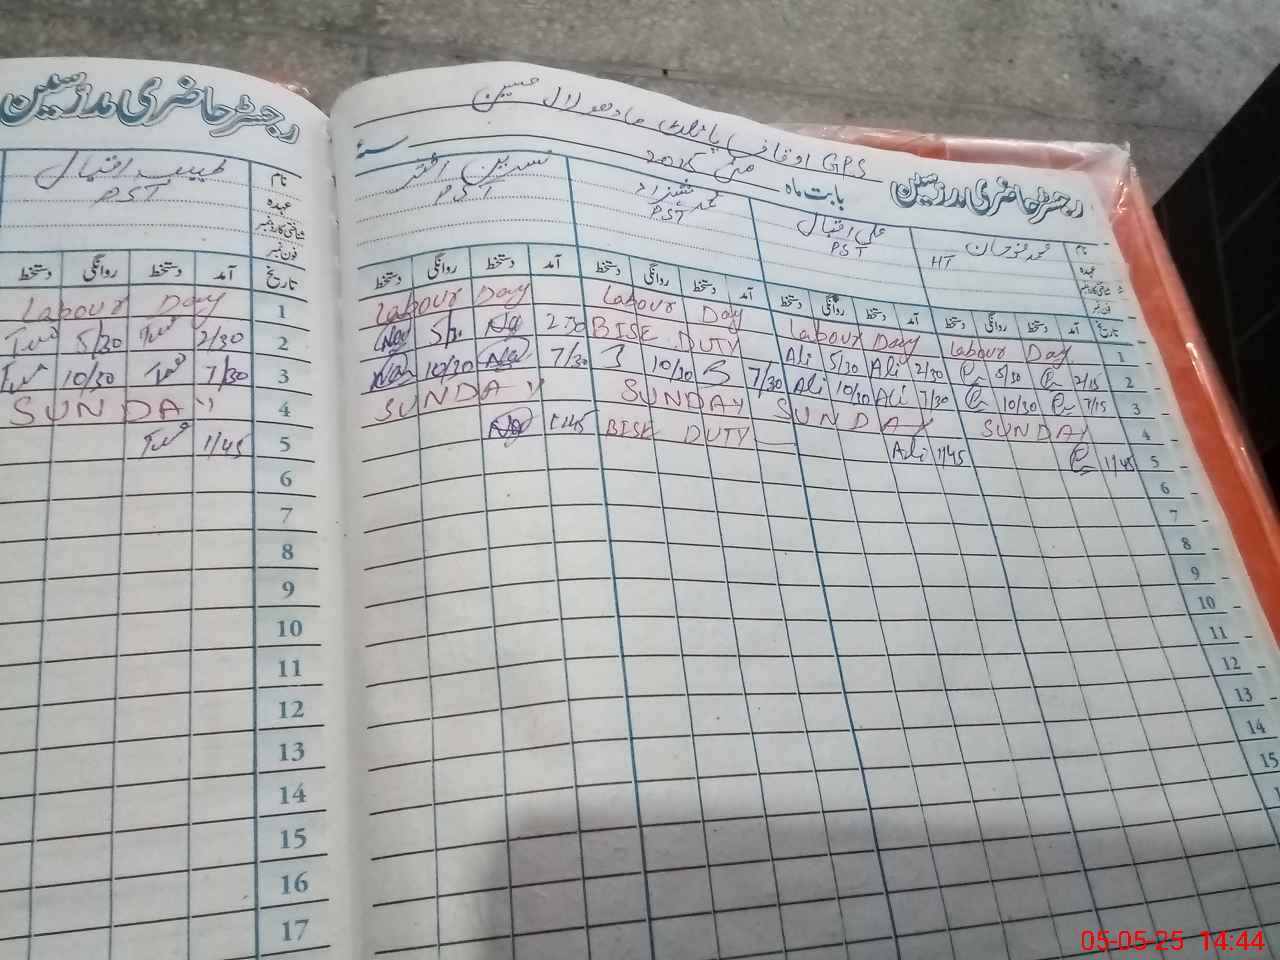 رجسٹر حاضری مدرسین
طیب اقبال
PST
نام
عہدہ
شناختی کارڈ نمبر
فون نمبر
تاریخ آمد دستخط روانگی دستخط
1 Labour Day
2 2/30 5/30
3 7/30 10/30
4 SUNDAY
5 1/45
6
7
8
9
10
11
12
13
14
15
16
17
GPS اوقاف پائلٹ مادھو لال حسین
رجسٹر حاضری مدرسین بابت ماہ مئی 2025 سنہ
نام
عہدہ
HT
علی اقبال
PST
محمد شہزاد
PST
نسرین اختر
PST
تاریخ آمد دستخط روانگی دستخط آمد دستخط روانگی دستخط آمد دستخط روانگی دستخط آمد دستخط روانگی دستخط
1 Labour Day Labour Day Labour Day Labour Day
2 2/15 5/30 2/30 Ali 5/30 Ali BISE DUTY 2 30 Na 5/30 Na
3 7/15 10/30 7/30 Ali 10/30 Ali 7/30 10/30 7/30 Na 10/30 Na
4 SUNDAY SUNDAY SUNDAY SUNDAY
5 1/45 1/45 Ali BISE DUTY 1 45 Na
6
7
8
9
10
11
12
13
14
15
05-05-25 14:44